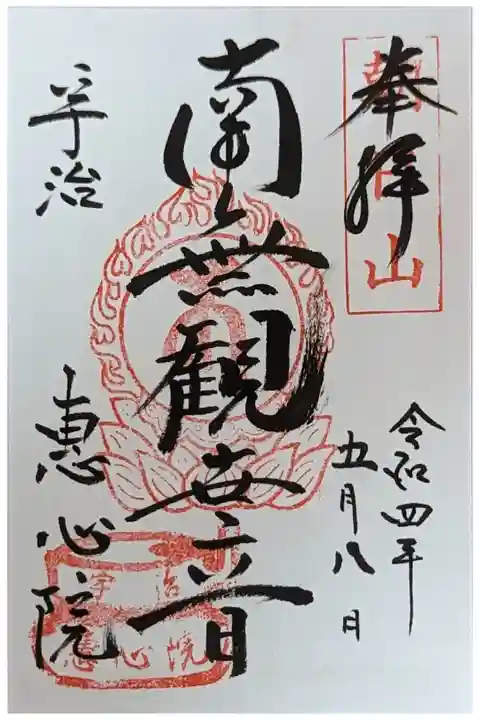 奉拝
令和四年
五月八日
南無観世音
宇治
恵心院
宇治
恵心院